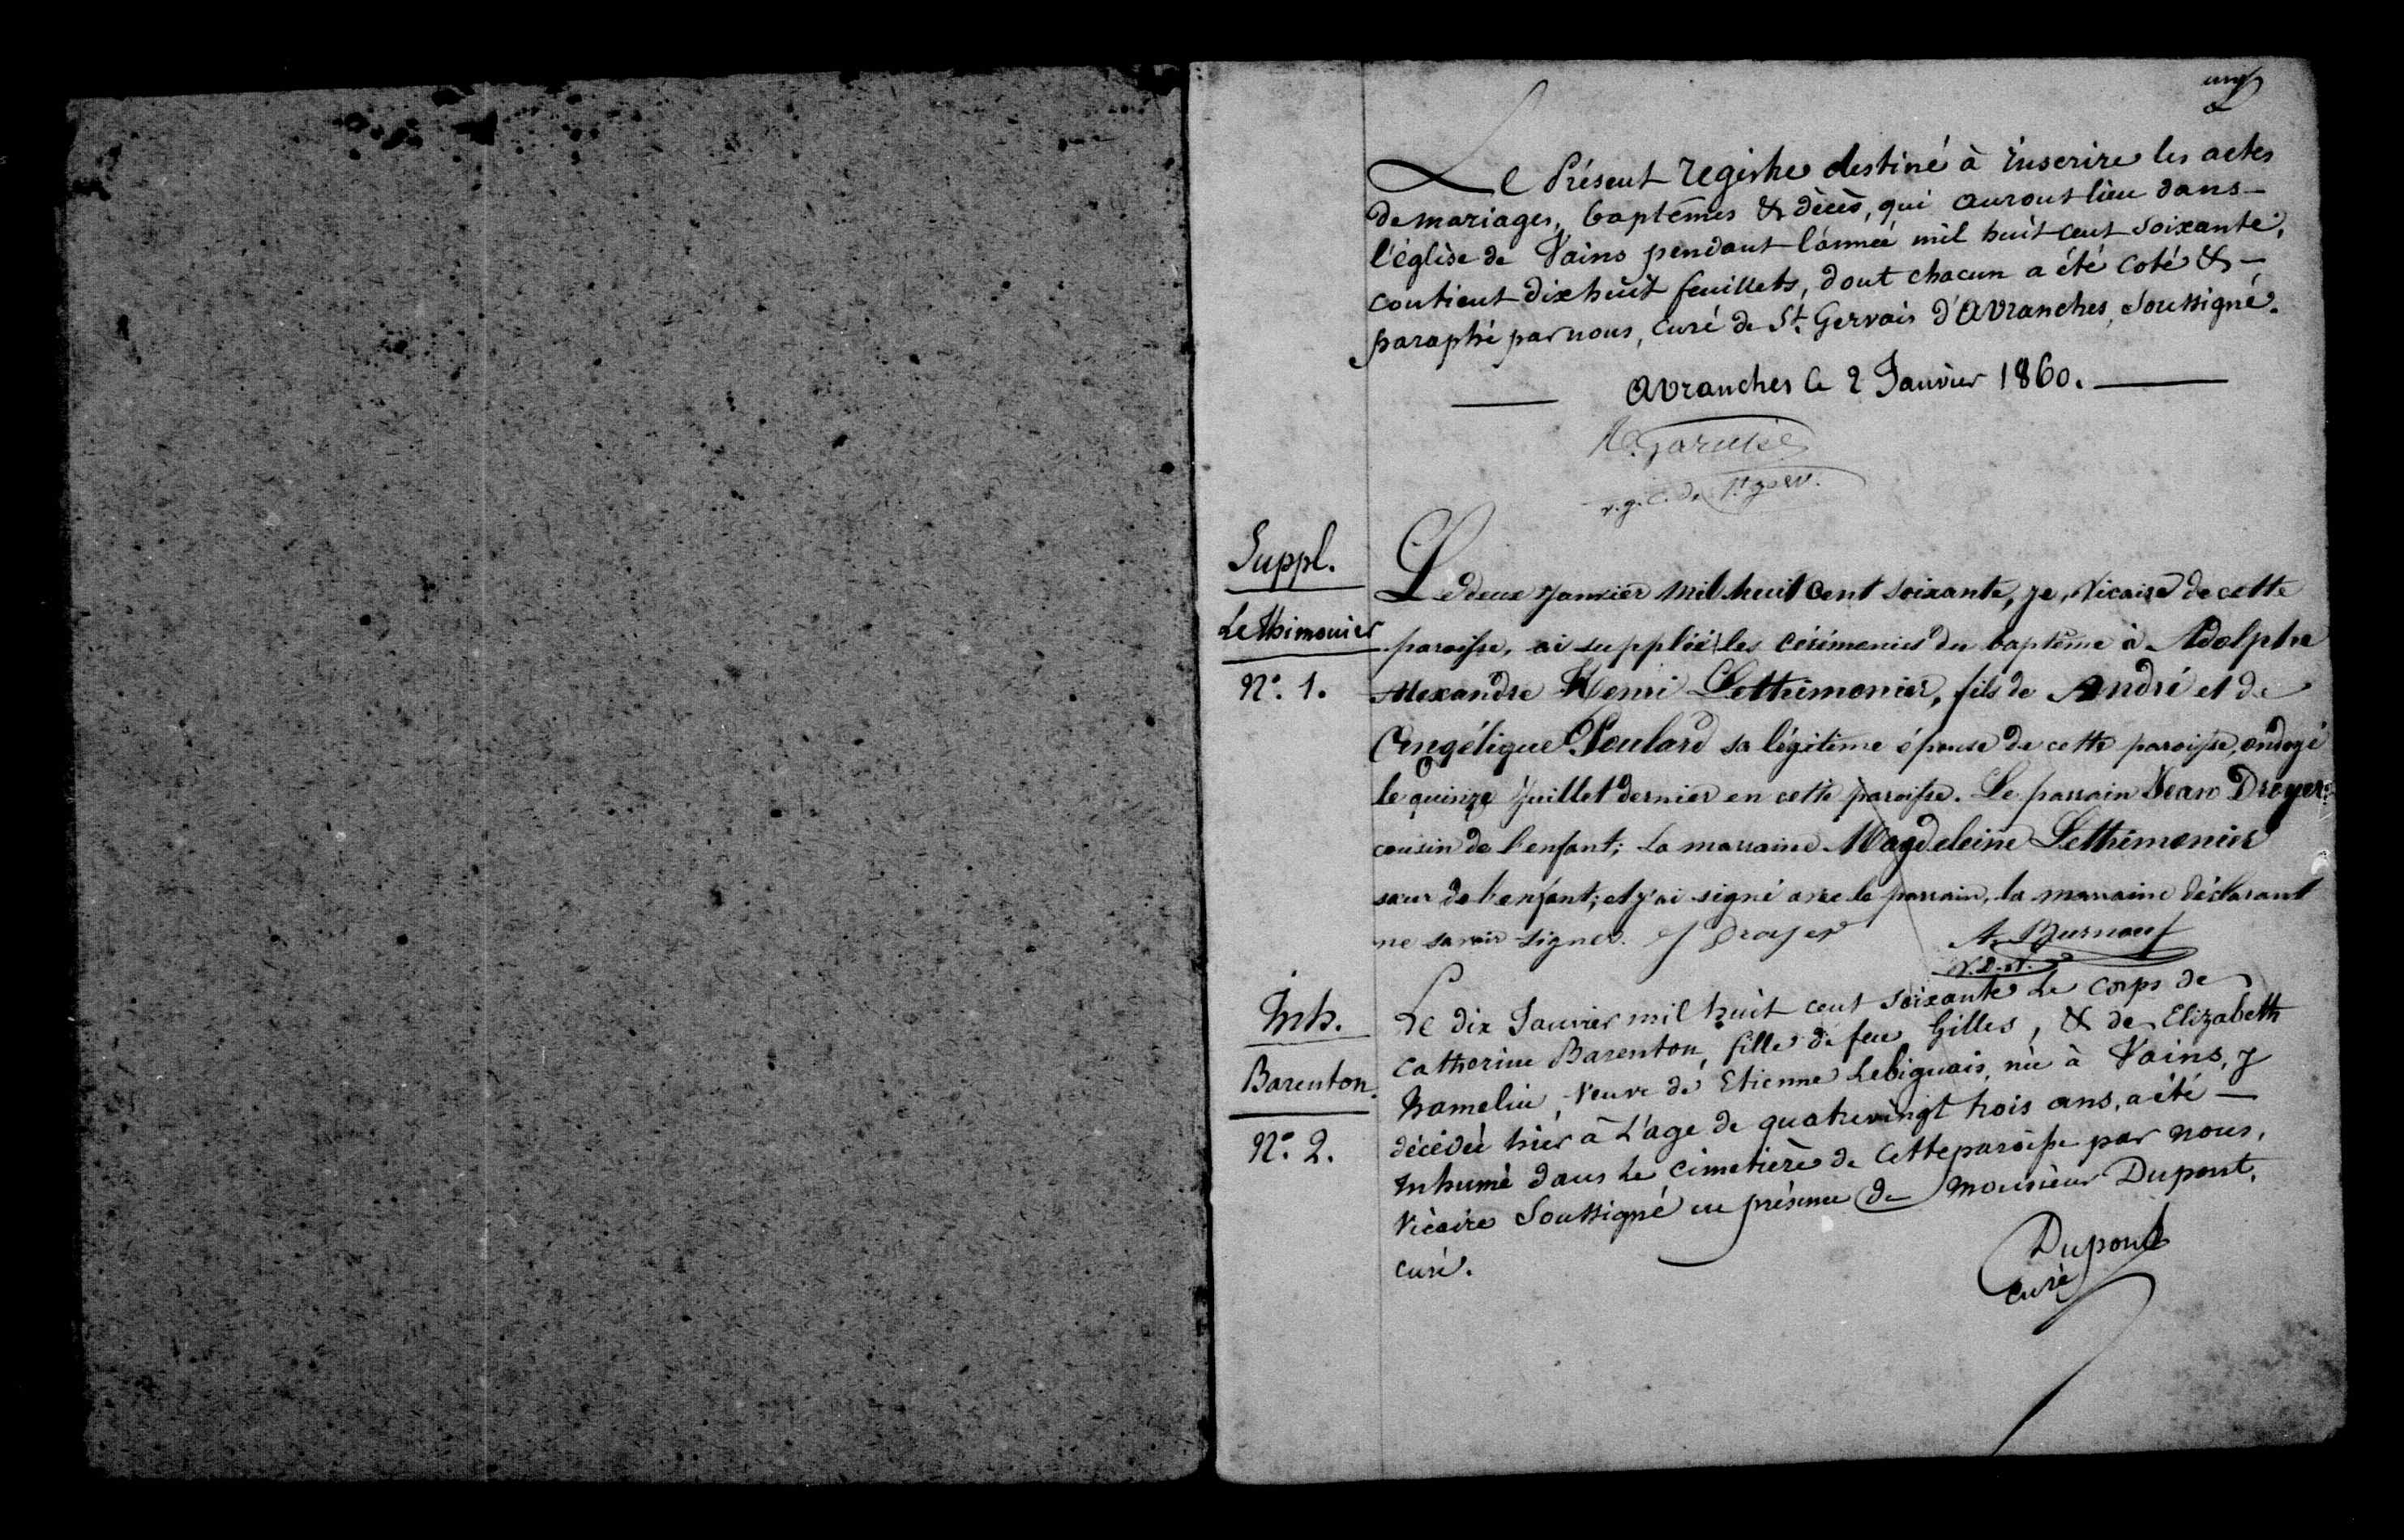 un
Le Présent registre destiné à inscrire les actes
de mariages, baptêmes & décès, qui auront lieu dans
l'église de Vains pendant l'année mil huit cent soixante,
contient dix huit feuillets, dont chacun a été coté &
paraphé par nous, curé de St. Gervais d'Avranches, soussigné.
Avranches le 2 Janvier 1860.
Suppl.
Lethimonier
N°. 1.
Le deux Janvier mil huit cent soixante, je, Vicaire de cette
paroisse, ai supplée les cérémonies du baptême à Adolphe
Alexandre Henri Lethimonier, fils de André et de
Angélique Poulard sa légitime épouse de cette paroisse, ondoyé
le quinze Juillet dernier en cette paroisse. Le parrain Jean Droyer
cousin de l'enfant; La marraine Magdeleine Lethimonier
sœur de l'enfant; et j'ai signé avec le parrain, la marraine déclarant
ne savoir signer. J Droyer A. Burnouf
v.d.v.
Inh.
Barenton.
N°. 2.
Le dix Janvier mil huit cent soixante Le Corps de
Catherine Barenton, fille de feu Gilles, & de Elizabeth
hamelin, Veuve de Etienne Lebiguais, née à Vains, y
décédée hier à L'age de quatrevingt trois ans, a été
Inhumé dans Le cimetière de Cette paroisse par nous,
Vicaire Soussigné en présence de Monsieur Dupont,
curé.
Dupont
curé